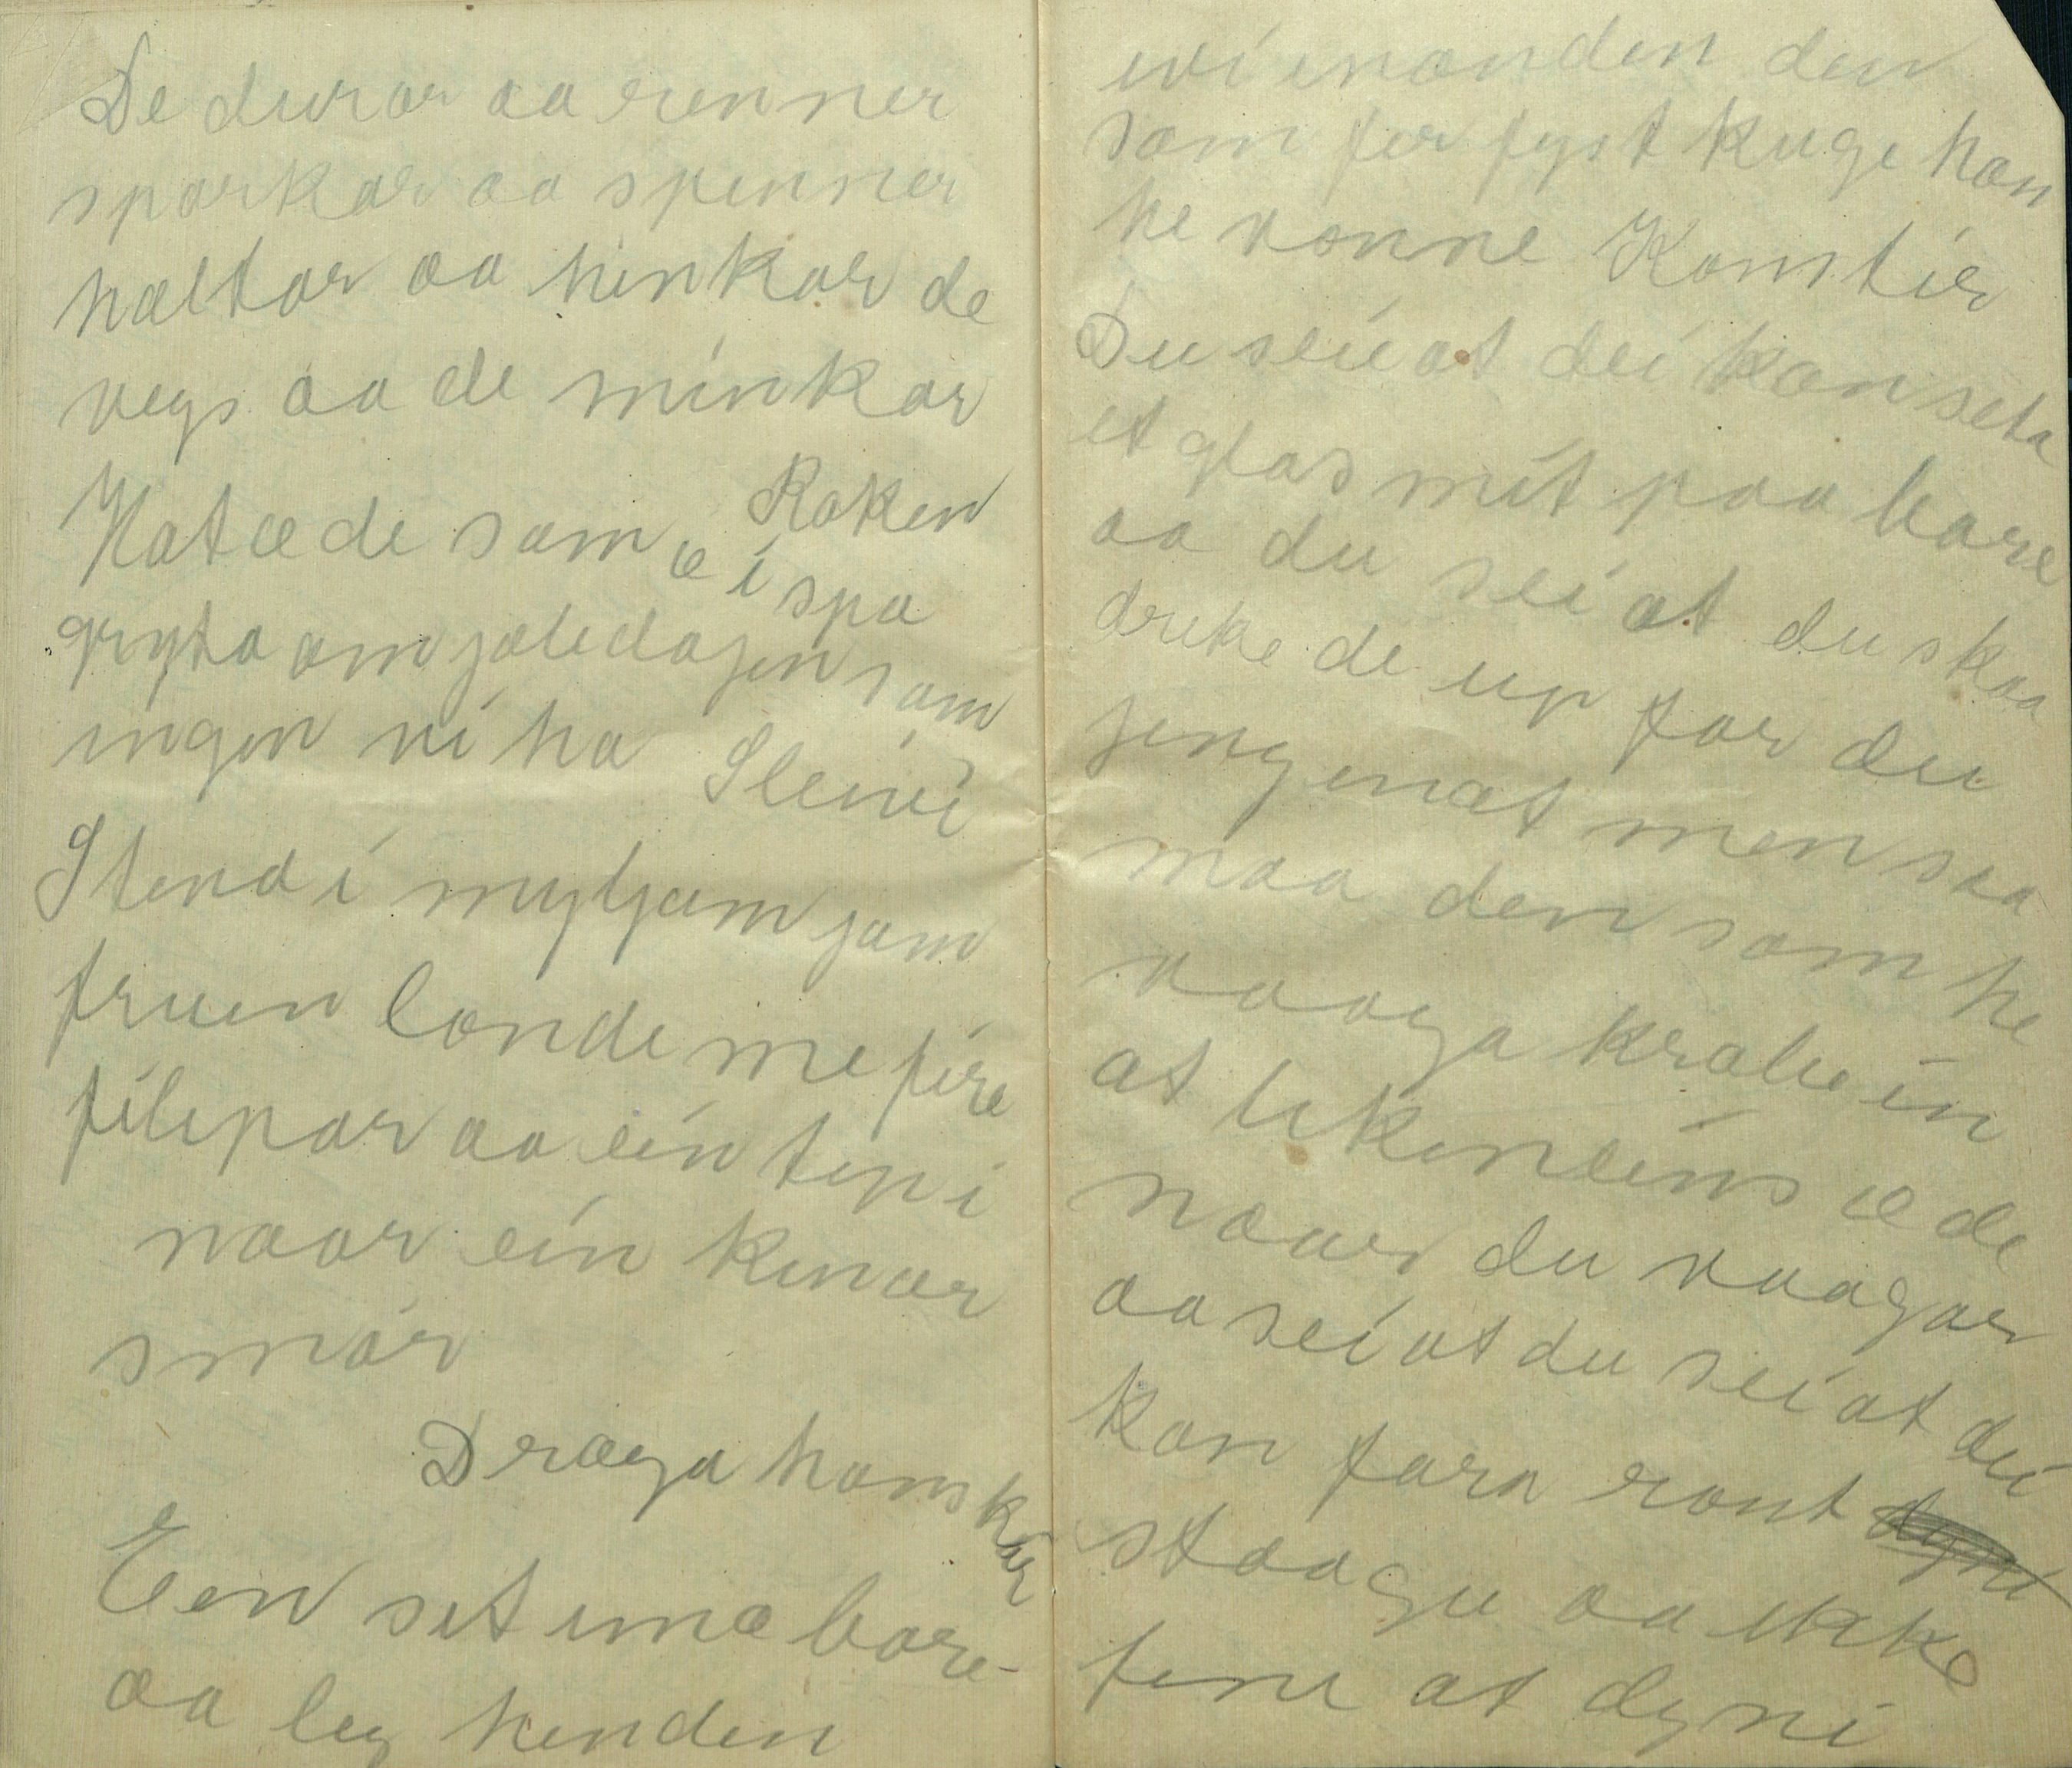 De durar aa renner
sparkar aa spenner
haltar aa hinkar de
vegs aa de minkar
Roken
Kat æ de som æ i spa
gryta om joledagen som
ingen vi ha Sleivi
Stend i mylljam jam
fruen londe me fire
filipar aa ein ten i
naar ein kinar
smør
Draga hanskar
Een set ime bare-
aa leg henden
ivi enanden den
som fer fyst kuge han
he vonne Komtir
Du sei at dei kan seta
et glas mit paa bare
aa du sei at du skaa
dreke de up for du
jeng enat men saa
maa den som he
vaaga krale in
at likeneins æ de
naar du vaagar
aa sei at du sei at dei
kan fara ront
staagu aa ikke
finu at dyni